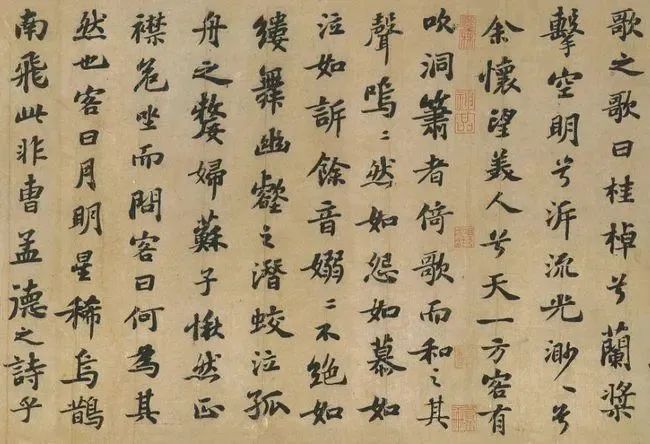 歌之歌曰桂棹兮蘭槳
擊空明兮泝流光渺〻兮
余懷望美人兮天一方客有
吹洞簫者倚歌而和之其
聲嗚〻然如怨如慕如
泣如訴餘音嫋〻不絕如
縷舞幽壑之潛蛟泣孤
舟之嫠婦蘇子愀然正
襟危坐而問客曰何為其
然也客曰月明星稀烏鵲
南飛此非曹孟德之詩乎